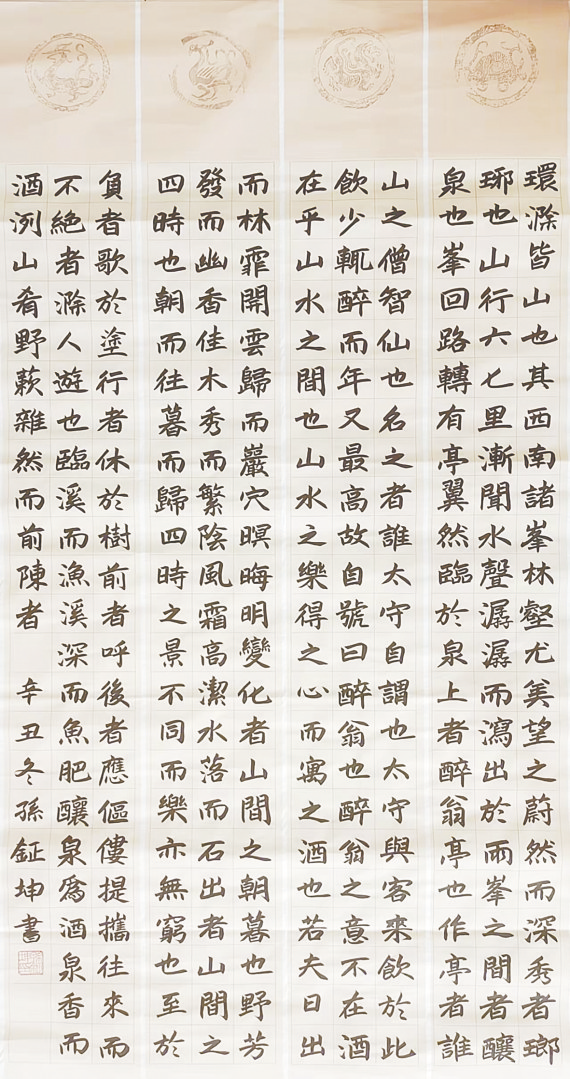 環滁皆山也其西南諸峯林壑尤美望之蔚然而深秀者瑯
琊也山行六七里漸聞水聲潺潺而瀉出於兩峯之間者釀
泉也峯回路轉有亭翼然臨於泉上者醉翁亭也作亭者誰
山之僧智仙也名之者誰太守自謂也太守與客來飲於此
飲少輒醉而年又最高故自號曰醉翁也醉翁之意不在酒
在乎山水之間也山水之樂得之心而寓之酒也若夫日出
而林霏開雲歸而巖穴暝晦明變化者山間之朝暮也野芳
發而幽香佳木秀而繁陰風霜高潔水落而石出者山間之
四時也朝而往暮而歸四時之景不同而樂亦無窮也至於
負者歌於塗行者休於樹前者呼後者應傴僂提攜往來而
不絶者滁人遊也臨溪而漁溪深而魚肥釀泉爲酒泉香而
酒洌山肴野蔌雜然而前陳者 辛丑冬孫鉦坤書